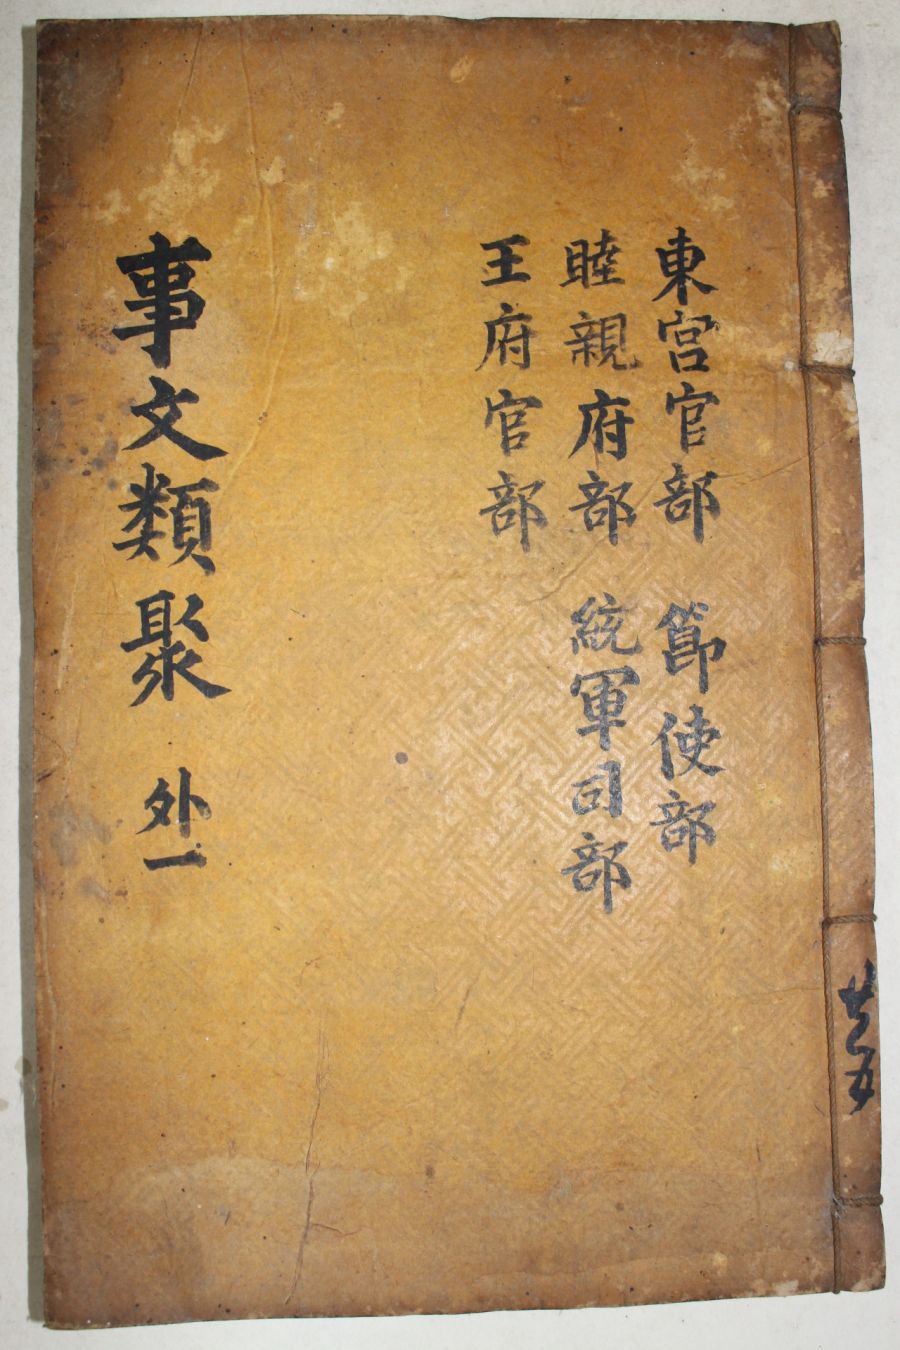 東宮官部 節使部
睦親府部 統軍司部
王府官部
事文類聚 外一